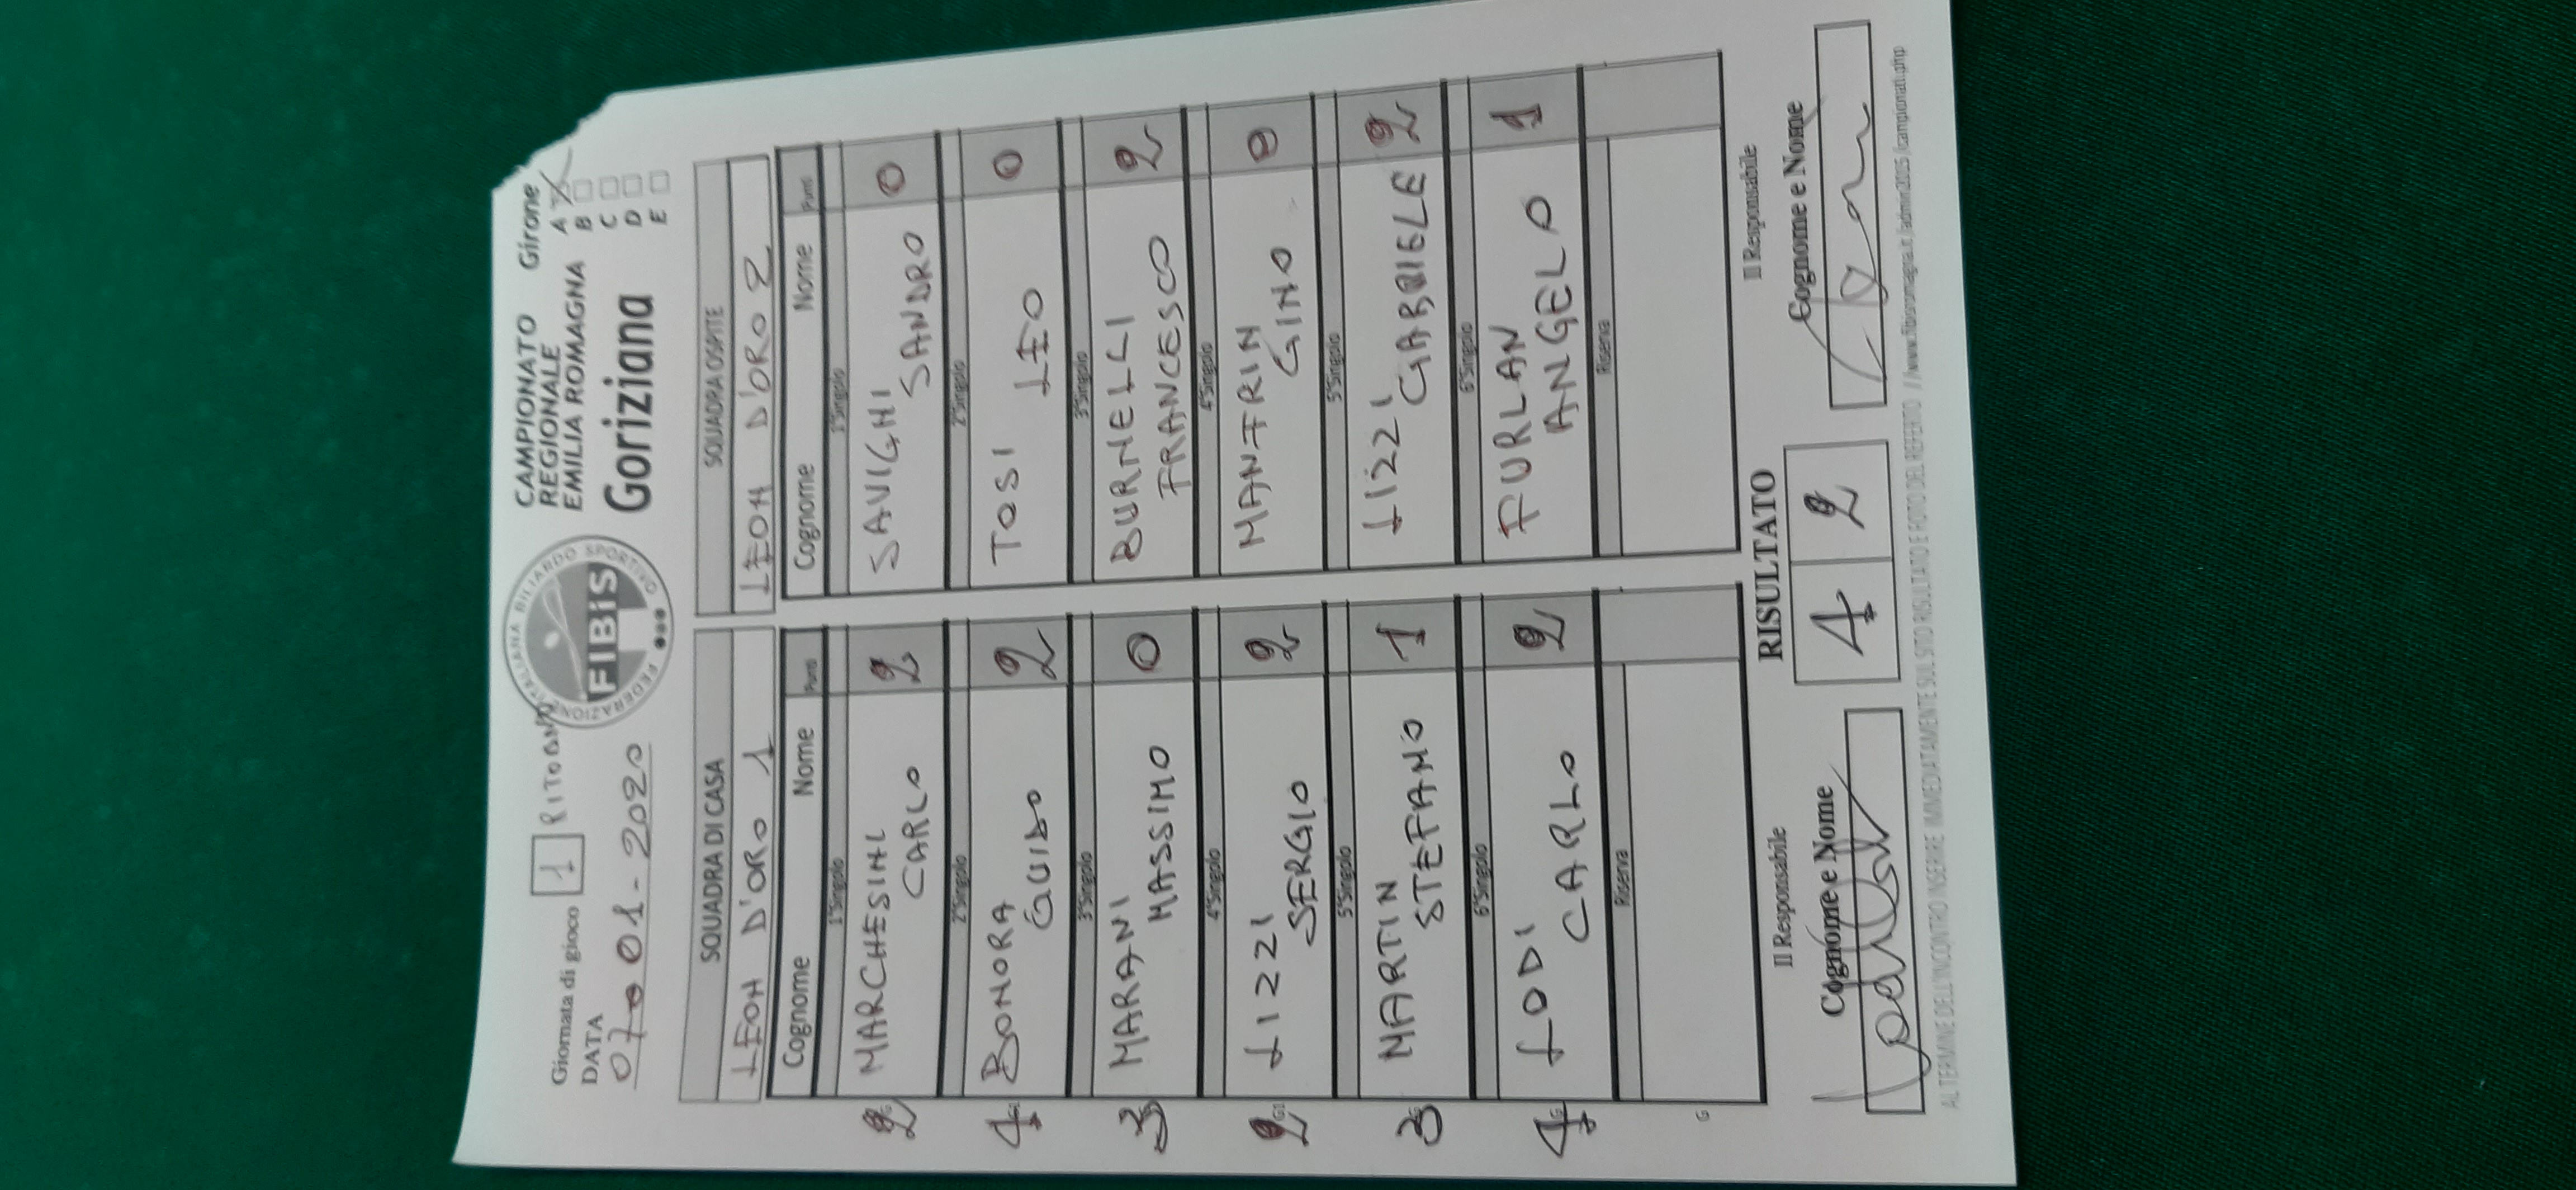 Giornata di gioco 1 RITORNO
DATA
07-01-2020
FEDERAZIONE ITALIANA BILIARDO SPORTIVO
FIBiS
CAMPIONATO
REGIONALE
EMILIA ROMAGNA
Goriziana
Girone
A X
B
C
D
E
SQUADRA DI CASA
LEON D'ORO 1
Cognome Nome Punti
1°Singolo
2 MARCHESINI CARLO 2
2°Singolo
4 BONORA GUIDO 2
3°Singolo
3 MARANI MASSIMO 0
4°Singolo
2 LIZZI SERGIO 2
5°Singolo
3 MARTIN STEFANO 1
6°Singolo
4 LODI CARLO 2
Riserva
G
SQUADRA OSPITE
LEON D'ORO 2
Cognome Nome Punti
1°Singolo
SAVIGHI SANDRO 0
2°Singolo
TOSI LEO 0
3°Singolo
BURNELLI FRANCESCO 2
4°Singolo
MANFRIN GINO 0
5°Singolo
LIZZI GABRIELE 2
6°Singolo
FURLAN ANGELO 1
Riserva
Il Responsabile
Cognome e Nome
RISULTATO
4 2
Il Responsabile
Cognome e Nome
AL TERMINE DELL'INCONTRO INSERIRE IMMEDIATAMENTE SUL SITO RISULTATO E FOTO DEL REFERTO //www.fibisromagna.it/admin2015/campionati.php